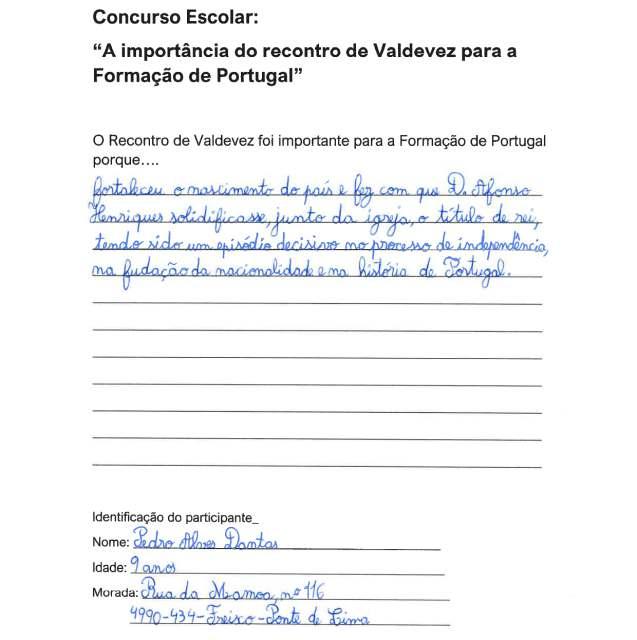 Concurso Escolar:
“A importância do recontro de Valdevez para a
Formação de Portugal”
O Recontro de Valdevez foi importante para a Formação de Portugal
porque....
fortaleceu o nascimento do país e fez com que D. Afonso
Henriques solidificasse, junto da igreja, o título de rei,
tendo sido um episódio decisivo no processo de independência,
na fudação da nacionalidade e na história de Portugal.
Identificação do participante_
Nome: Pedro Alves Dantas
Idade: 9 anos
Morada: Rua da Mamoa, nº 116
4990-434-Freixo-Ponte de Lima